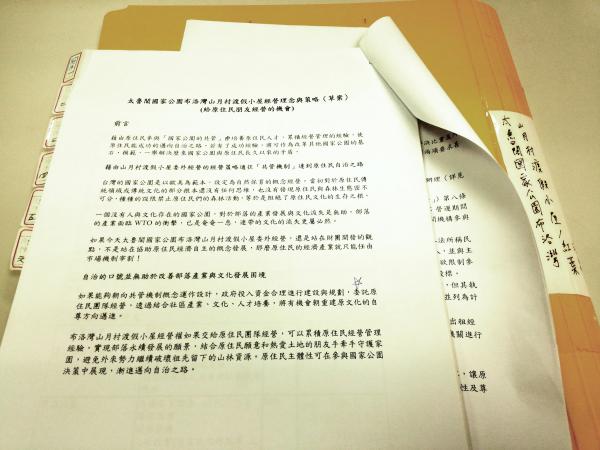 太魯閣國家公園布洛灣山月村渡假小屋經營理念與策略（草案）
(給原住民朋友經營的機會)
前言
藉由原住民參與「國家公園的共管」學培養原住民人才、累積經營管理的經驗，使
原住民能成功的邁向自治之路，若有了成功經驗，將可作為改革其他國家公園的基
石、模範，一舉解決歷來國家公園與原住民長久以來的矛盾。
藉由山月村渡假小屋委外經營的經營策略通往「共管機制」達到原住民自治之路
台灣的國家公園是以歐美為範本，設定為自然保育的概念經營，當初對於原住民傳
統領域或傳統文化的部分根本還沒有任何思維，也沒有發現原住民與森林生態密不
可分，種種的設限禁止原住民們的森林活動，等於是阻絕了原住民文化的生存之根。
一個沒有人與文化存在的國家公園，對於部落的產業發展與文化流失是幫助，部落
的產業面臨 WTO 的衝擊，也是奄奄一息，連帶的文化的流失更屬必然。
如果今天太魯閣國家公園布洛灣山月村渡假小屋委外經營，還是站在財團開發的觀
點，不是站在協助原住民經濟自主的概念發展，那麼原住民的經濟產業就只能任由
市場機制宰制！
自治的口號並無助於改善部落產業與文化發展困境
如果能夠朝向共管機制概念運作設計，政府投入資金合理進行建設與規劃，委託原
住民團隊經營，透過結合社區產業、文化、人才培養，將有機會朝重建原文化的自
尊方向邁進。
布洛灣山月村渡假小屋經營權如果交給原住民團隊經營，可以累積原住民經營管理
經驗，實現部落永續發展的願景，結合原住民願意和熱愛土地的朋友手牽手守護家
園，避免外來勢力繼續破壞祖先留下的山林資源。原住民主體性可在參與國家公園
決策中展現，漸進邁向自治之路。
山月村渡假小屋/紅葉
太魯閣國家公園布洛灣